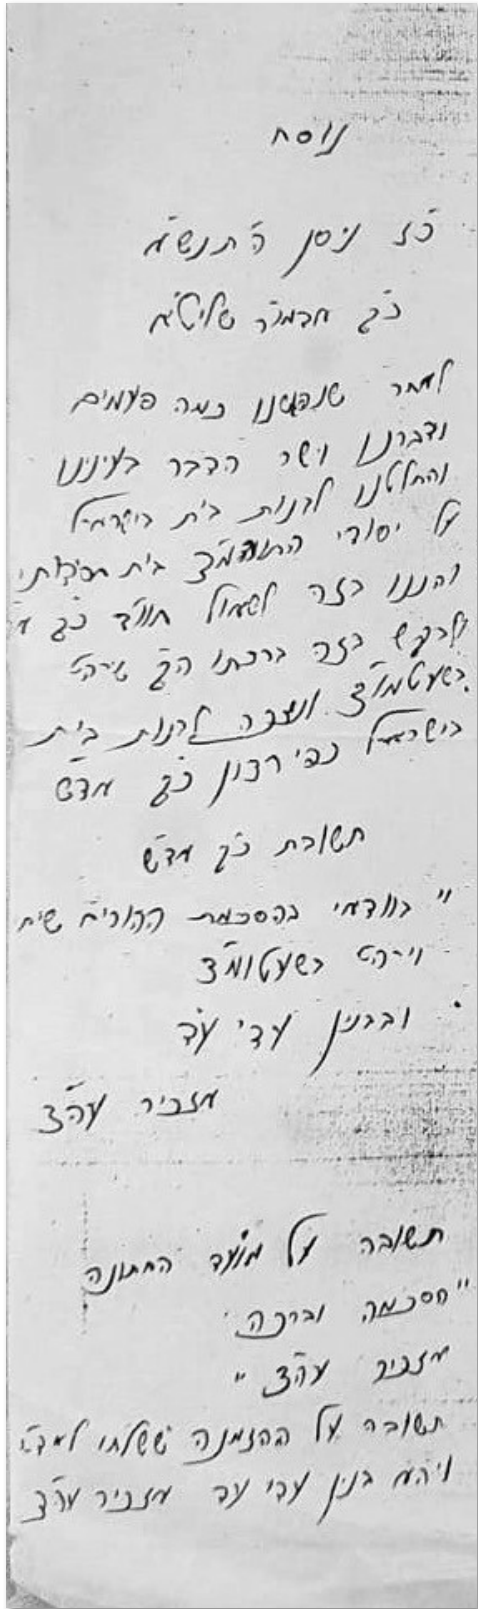 נוסח
כ"ז ניסן ה'תנש"א
כ"ק אדמו"ר שליט"א
לאחר שנפגשנו כמה פעמים
ודברנו וישר הדבר בעינינו
והחלטנו לבנות בית בישראל
על יסודי התומ"צ בית חסידותי
והננו בזה לשאול חוו"ד כ"ק
ולבקש בזה ברכתו הק' שיהי'
בשעטמו"צ ונזכה לבנות בית
בישראל כפי רצון כ"ק אד"ש
תשובת כ"ק אד"ש
" בוודאי בהסכמת ההורים שיח'
ויהי' בשעטומ"צ
ובבנין עדי עד
אזכיר עה"צ
תשובה על מועד החתונה
"הסכמה וברכה
אזכיר עה"צ "
תשובה על ההזמנה ששלחו לאד"ש
ויהא בנין עדי עד אזכיר עה"צ